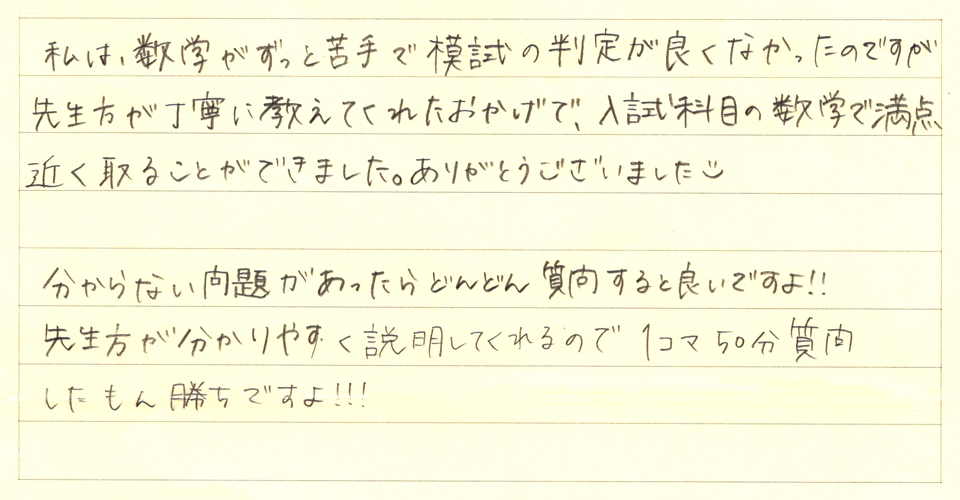 私は、数学がずっと苦手で模試の判定が良くなかったのですが
先生方が丁寧に教えてくれたおかげで、入試科目の数学で満点
近く取ることができました。ありがとうございました
分からない問題があったらどんどん質問すると良いですよ!!
先生方が分かりやすく説明してくれるので 1コマ50分質問
したもん勝ちですよ!!!